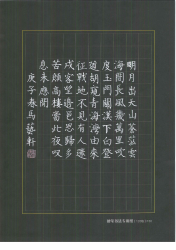 明月出天山蒼茫雲
海間長風幾萬里吹
度玉門關漢下白登
道胡窺青海灣由來
征戰地不見有人還
戍客望邊邑思歸多
苦顏高樓當此夜歎
息未應閒
庚子春馬藝軒